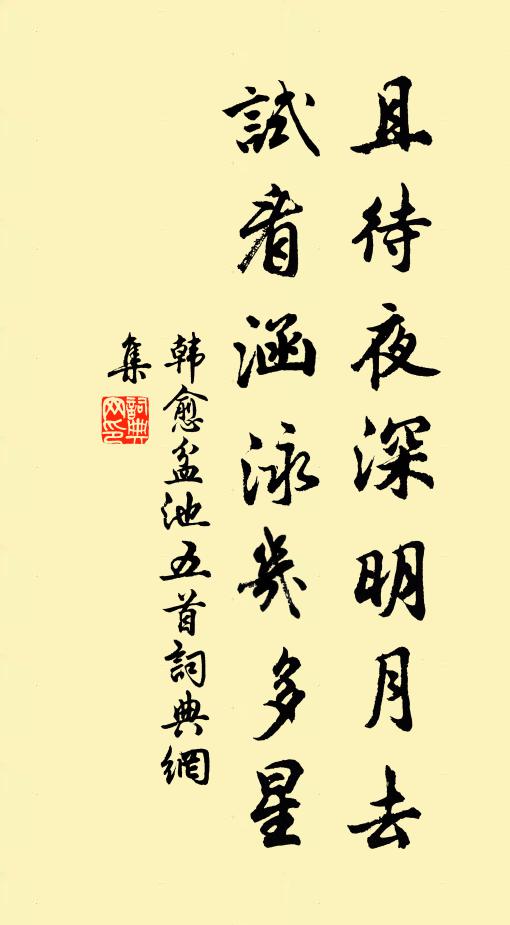 且待夜深明月去
試看涵泳幾多星
韩愈盆池五首詞典網
集
詞典網印